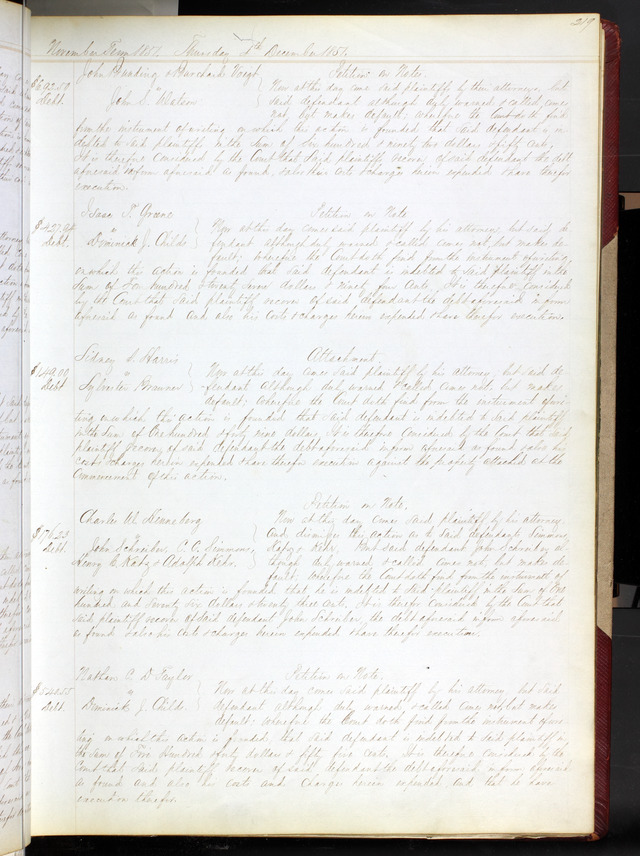 219
November Term 1851. Thursday 4th December 1851.
John Harding & Burchard Voigt Petition on Note.
$692.50 Now at this day come said plaintiffs by their attorney, but
Debt. John S. Watson said defendant although duly warned & called comes
not, but makes default; wherefore the Court doth find
from the instrument of writing on which this action is founded that said defendant is in-
debted to said plaintiffs in the sum of Six hundred & ninety two dollars & fifty cents,
It is therefore considered by the Court that said plaintiffs recover of said defendant the debt
aforesaid in form aforesaid as found, & also their costs & charges herein expended & have therefor
execution.
Isaac T. Greene Petition on Note
$427.94 Now at this day comes said plaintiff by his attorney but said de-
Debt. Dominick J. Childs fendant although duly warned & called comes not, but makes de-
fault; wherefore the Court doth find from the instrument of writing
on which this action is founded that said defendant is indebted to said plaintiff in the
sum of Four hundred & twenty seven dollars & ninety four cents, It is therefore considered
by the Court that said plaintiff recover of said defendant the debt aforesaid in form
aforesaid as found and also his costs & charges herein expended & have therefor execution.
Sidney S. Harris Attachment.
$149.00 Now at this day comes said plaintiff by his attorney, but said de-
Debt Sylvester Branner fendant although duly warned & called comes not, but makes
default; wherefore the Court doth find from the instrument of wri-
ting on which this action is founded that said defendant is indebted to said plaintiff
in the sum of One hundred & forty nine dollars. It is therefore considered by the Court that said
plaintiff recover of said defendant the debt aforesaid in form aforesaid as found, & also his
costs & charges herein expended & have therefor execution against the property attached at the
commencement of this action.
Petition on Note.
Charles W. Henneberg Now at this day comes said plaintiff by his attorney
$176.23 And dismisses this action as to said defendants Simmons,
Debt. John Schreiber, C. C. Simmons, Katz & Kehr. And said defendant John Schreiber al-
Henry C. Katz & Adolph Kehr. though duly warned & called comes not, but makes de-
fault; wherefore the Court doth find from the instrument of
writing on which this action is founded that he is indebted to said plaintiff in the sum of One
hundred and seventy six dollars & twenty three cents. It is therefore considered by the Court that
said plaintiff recover of said defendant John Schreiber, the debt aforesaid in form aforesaid
as found & also his costs & charges herein expended & have therefor execution.
Nathan C. D. Taylor Petition on Note.
$540.55 Now at this day comes said plaintiff by his attorney but said
Debt. Dominick J. Childs. defendant although duly warned, & called comes not, but makes
default; wherefore the Court doth find from the instrument of wri-
ting on which this action is founded, that said defendant is indebted to said plaintiff in
the sum of Five Hundred & forty dollars & fifty five cents. It is therefore considered by the
Court that said plaintiff recover of said defendant the debt aforesaid in form aforesaid
as found and also his costs and charges herein expended and that he have
execution therefor.